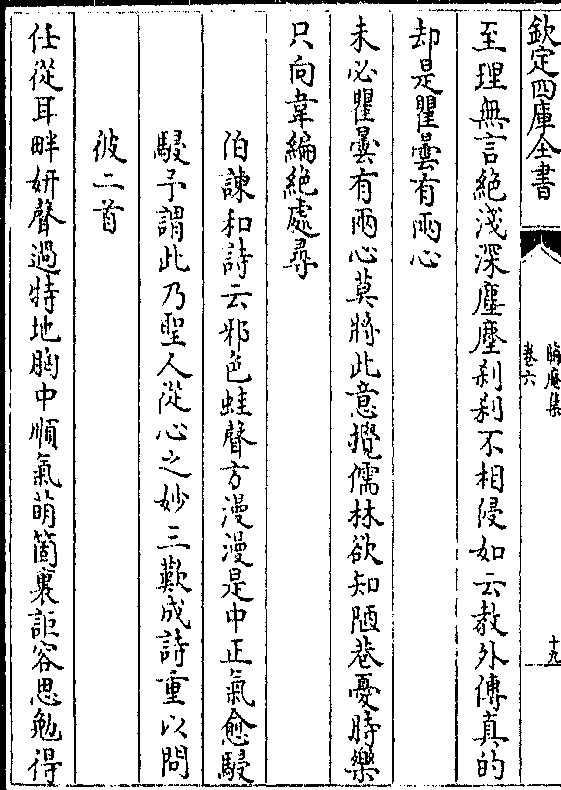 欽定四庫全書
晦庵集
卷六
十九
至理無言絶淺深塵塵刹刹不相侵如云教外傳真的
却是瞿曇有兩心
未必瞿曇有兩心莫將此意攪儒林欲知陋巷憂時樂
只向韋編絶處尋
伯諫和詩云邪色蛙聲方漫漫是中正氣愈駸
駸予謂此乃聖人從心之妙三歎成詩重以問
彼二首
任從耳畔妍聲過特地胸中順氣萌箇裏詎容思勉得